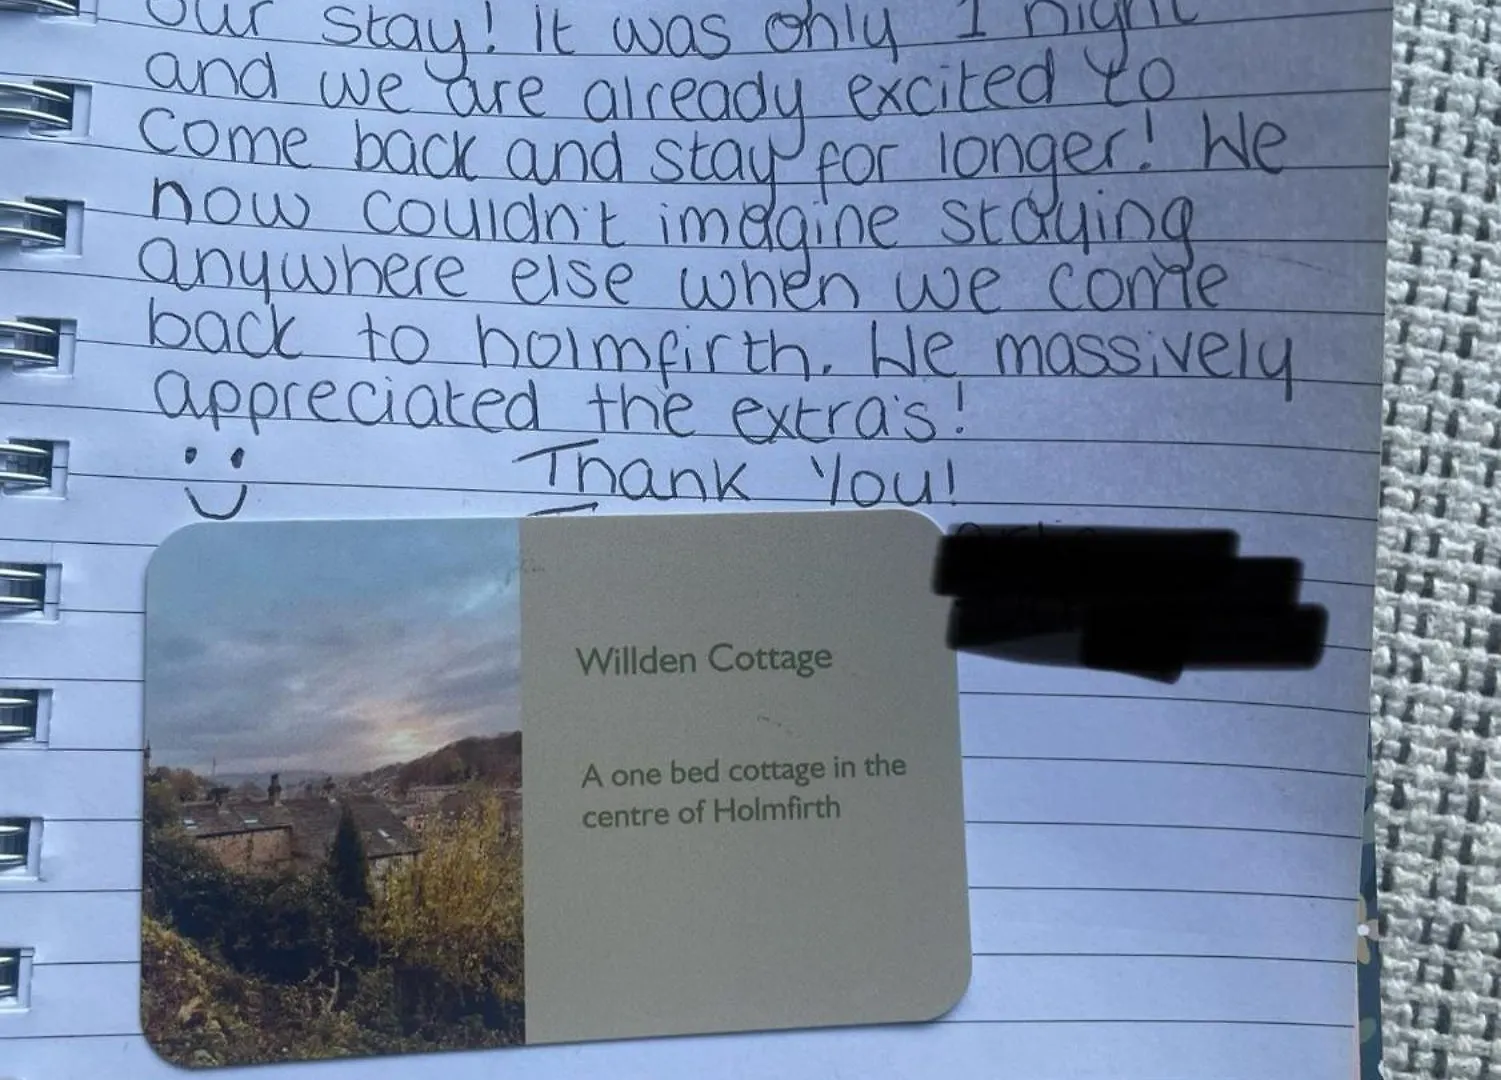 our stay! It was only 1 night
and we are already excited to
come back and stay for longer! We
now couldn't imagine staying
anywhere else when we come
back to holmfirth. We massively
appreciated the extra's!
Thank You!
Willden Cottage
A one bed cottage in the
centre of Holmfirth